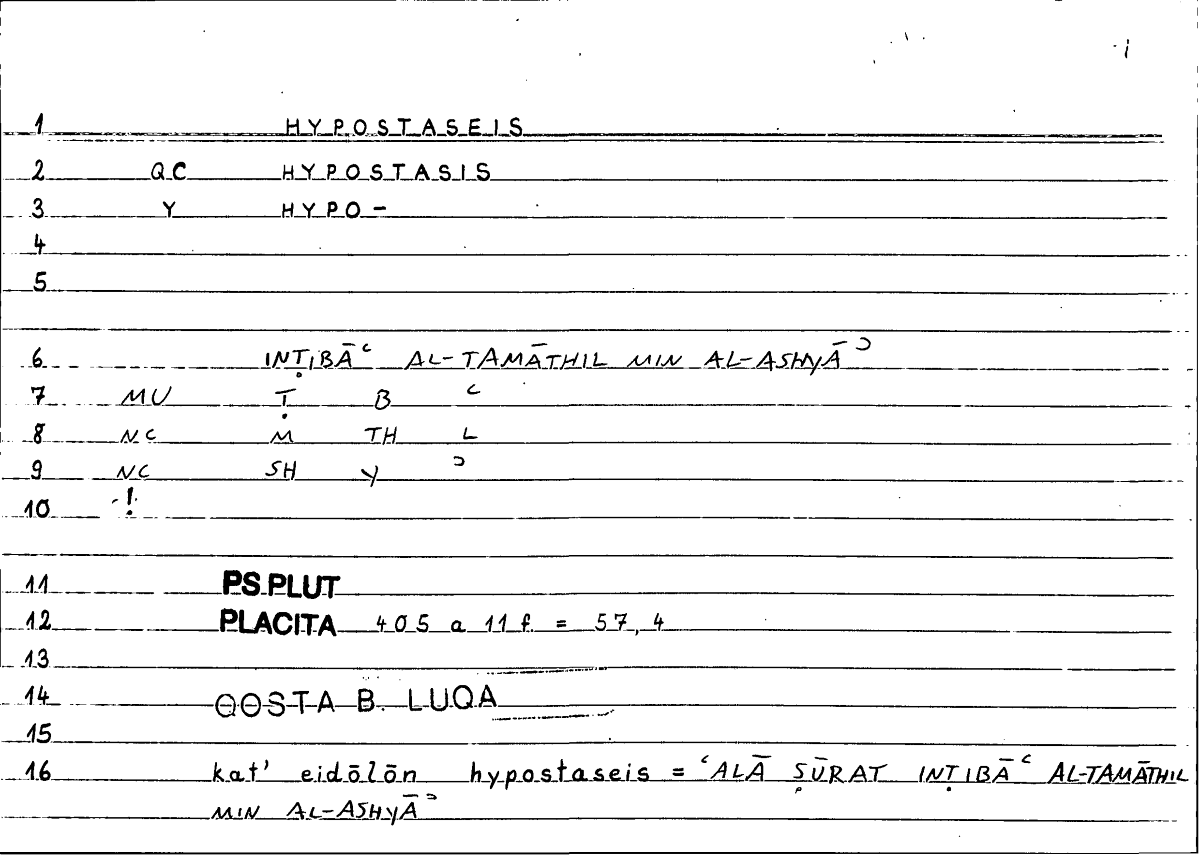 1 HYPOSTASEIS
2 QC HYPOSTASIS
3 Y HYPO-
4
5
6 INṬIBĀʿ AL-TAMĀTHIL MIN AL-ASHYĀʾ
7 MU Ṭ B ʿ
8 NC M TH L
9 NC SH Y ʾ
10 !
11 PS.PLUT
12 PLACITA 405 a 11 f. = 57,4
13
14 QOSTA B. LUQA
15
16 kat' eidōlōn hypostaseis = ʿALĀ ṢŪRAT INṬIBĀʿ AL-TAMĀTHIL
MIN AL-ASHYĀʾ